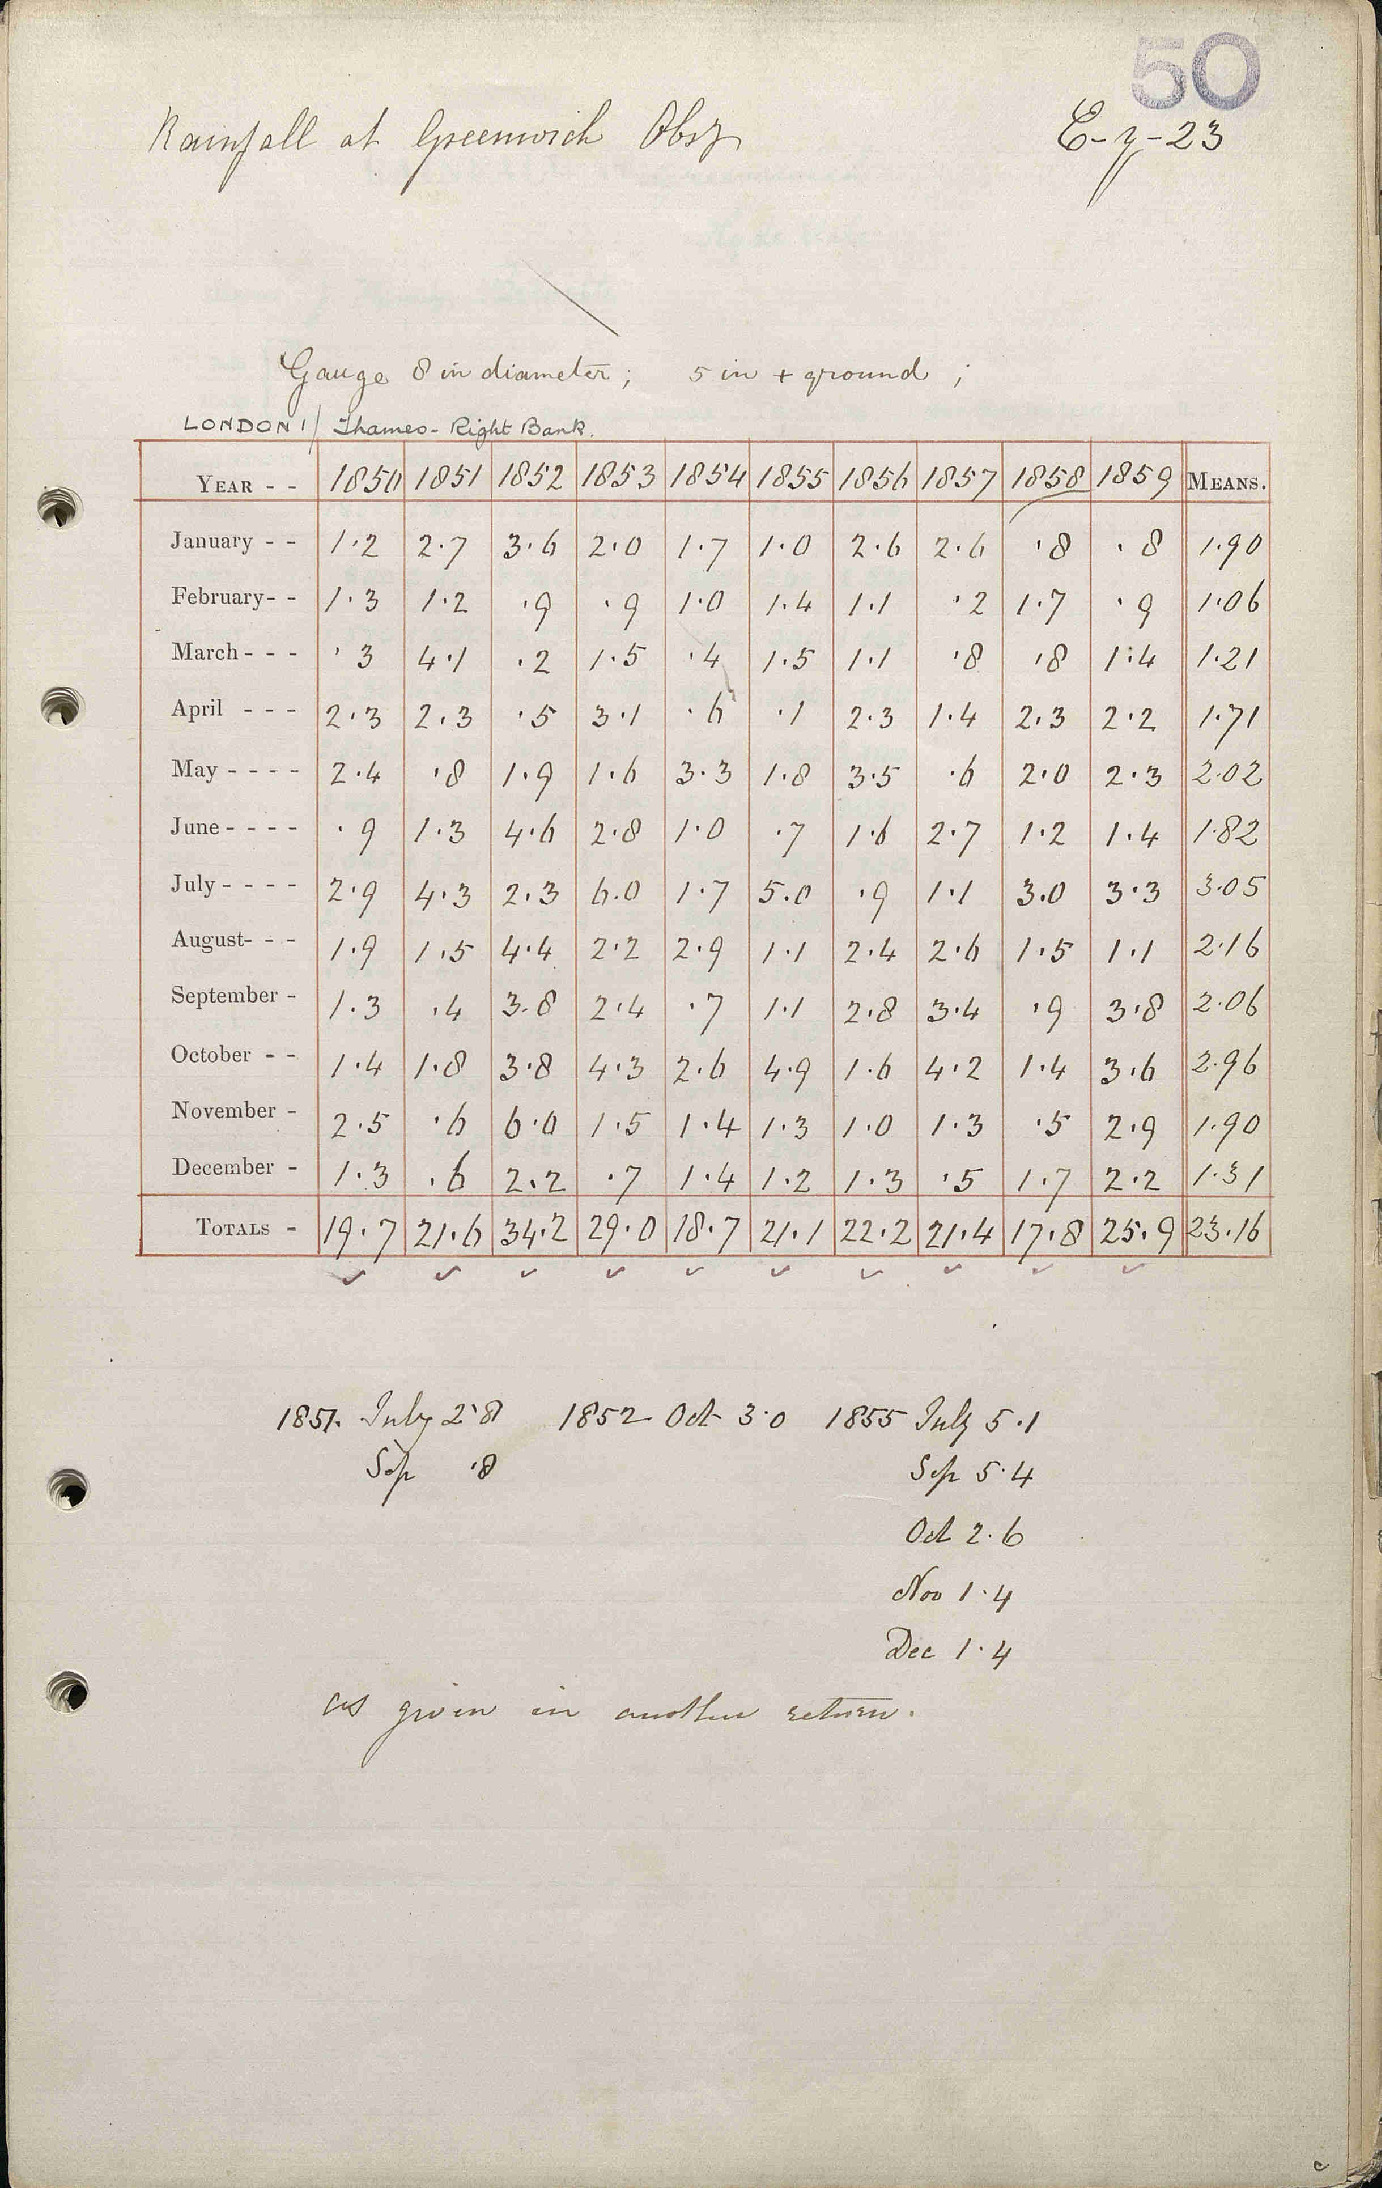 50
Rainfall at Greenwich Obsy E-y-23
Gauge 8 in diameter; 5 in + ground ;
LONDON 1/ Thames - Right Bank.
YEAR - - 1850 1851 1852 1853 1854 1855 1856 1857 1858 1859 MEANS.
January - - 1.2 2.7 3.6 2.0 1.7 1.0 2.6 2.6 .8 .8 1.90
February- - 1.3 1.2 .9 .9 1.0 1.4 1.1 .2 1.7 .9 1.06
March - - - .3 4.1 .2 1.5 .4 1.5 1.1 .8 .8 1.4 1.21
April - - - 2.3 2.3 .5 3.1 .6 .1 2.3 1.4 2.3 2.2 1.71
May - - - - 2.4 .8 1.9 1.6 3.3 1.8 3.5 .6 2.0 2.3 2.02
June - - - - .9 1.3 4.6 2.8 1.0 .7 1.6 2.7 1.2 1.4 1.82
July - - - - 2.9 4.3 2.3 6.0 1.7 5.0 .9 1.1 3.0 3.3 3.05
August- - - 1.9 1.5 4.4 2.2 2.9 1.1 2.4 2.6 1.5 1.1 2.16
September - 1.3 .4 3.8 2.4 .7 1.1 2.8 3.4 .9 3.8 2.06
October - - 1.4 1.8 3.8 4.3 2.6 4.9 1.6 4.2 1.4 3.6 2.96
November - 2.5 .6 6.0 1.5 1.4 1.3 1.0 1.3 .5 2.9 1.90
December - 1.3 .6 2.2 .7 1.4 1.2 1.3 .5 1.7 2.2 1.31
TOTALS - 19.7 21.6 34.2 29.0 18.7 21.1 22.2 21.4 17.8 25.9 23.16
1851. July 2.8 1852 Oct 3.0 1855 July 5.1
Sep .8 Sep 5.4
Oct 2.6
Nov 1.4
Dec 1.4
as given in another return.